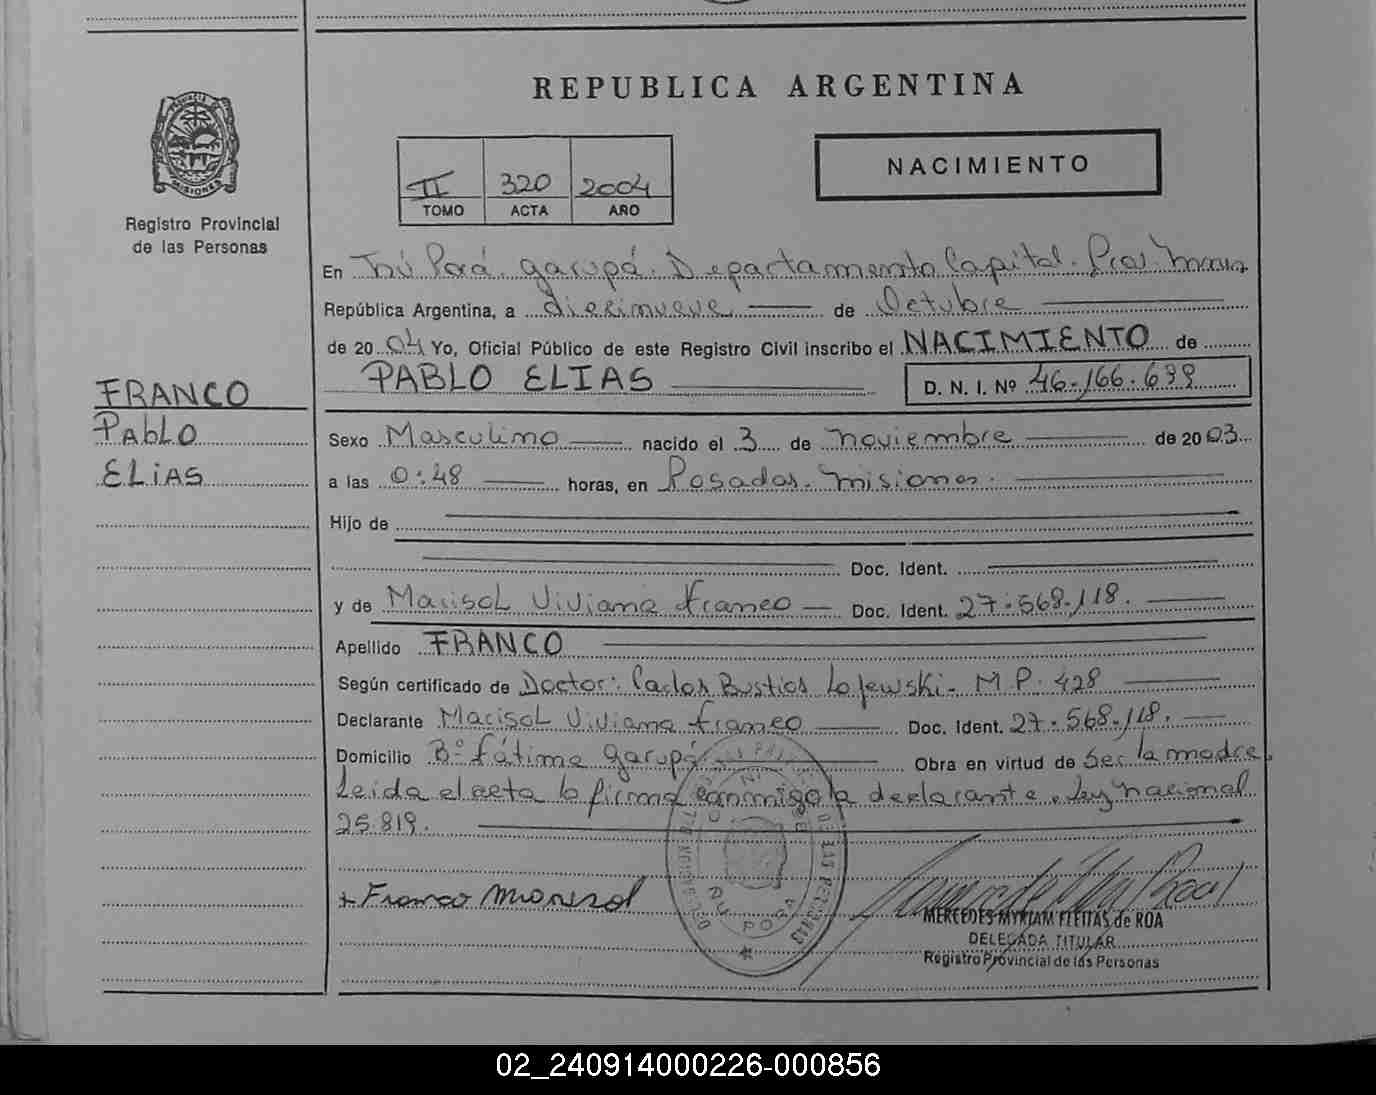 REPUBLICA ARGENTINA
PROVINCIA DE
MISIONES
Registro Provincial
de las Personas
NACIMIENTO
II 320 2004
TOMO ACTA AÑO
En Ñú Porá. Garupá. Departamento Capital. Prov. Mnes
República Argentina, a diecinueve de Octubre
de 2004 Yo, Oficial Público de este Registro Civil inscribo el NACIMIENTO de
PABLO ELIAS D. N. I. Nº 46.166.699
FRANCO
PABLO
ELIAS
Sexo Masculino nacido el 3 de noviembre de 2003
a las 0:48 horas, en Posadas. Misiones.
Hijo de
Doc. Ident.
y de Marisol Viviana Franco Doc. Ident. 27.568.118.
Apellido FRANCO
Según certificado de Doctor: Carlos Bustios Lojewski. M.P. 428
Declarante Marisol Viviana Franco Doc. Ident. 27.568.118.
Domicilio Bº Fátima Garupá Obra en virtud de Ser la madre.
Leida el acta la firma conmigo la declarante. Ley Nacional
25.819.
+ Franco Marisol
ÑU PORA
MERCEDES MYRIAM FLEITAS de ROA
DELEGADA TITULAR
Registro Provincial de las Personas
02_240914000226-000856